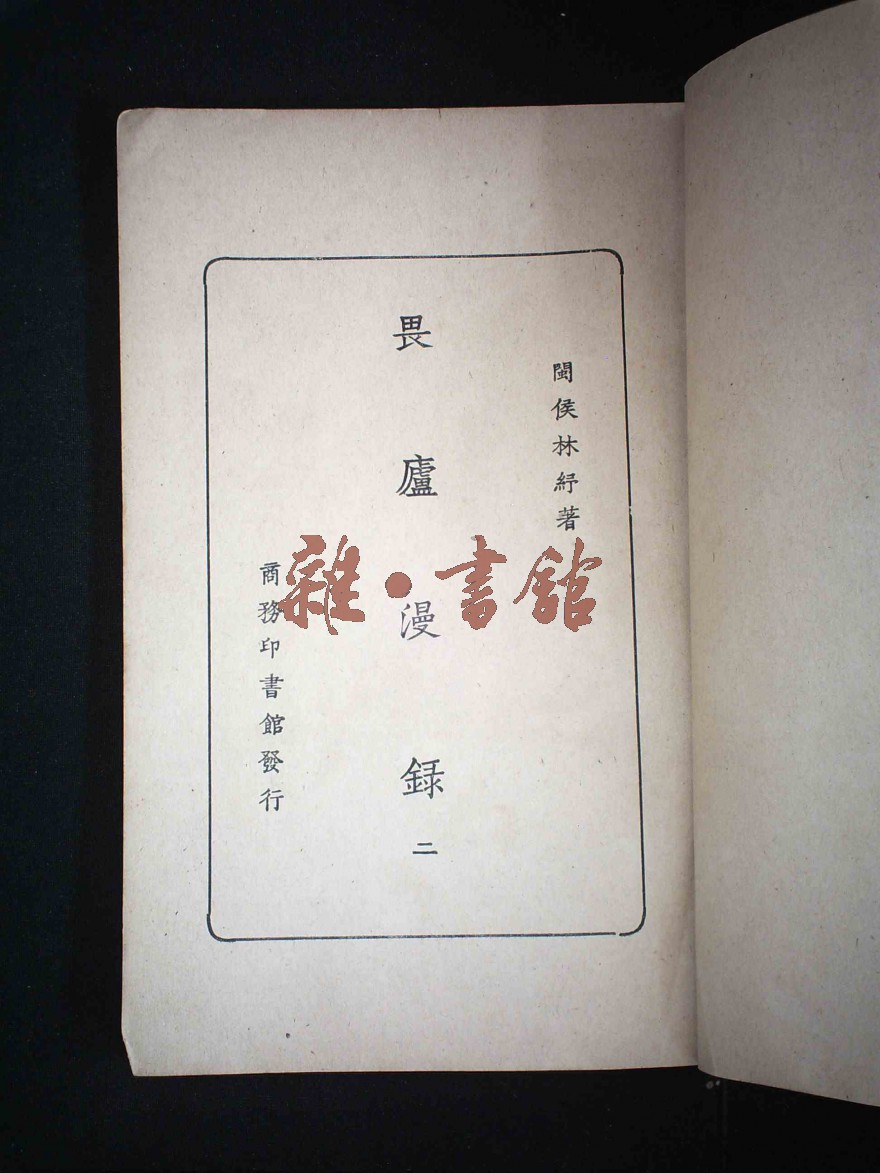 閩侯林紓著
畏廬漫録二
商務印書館發行
雜·書館